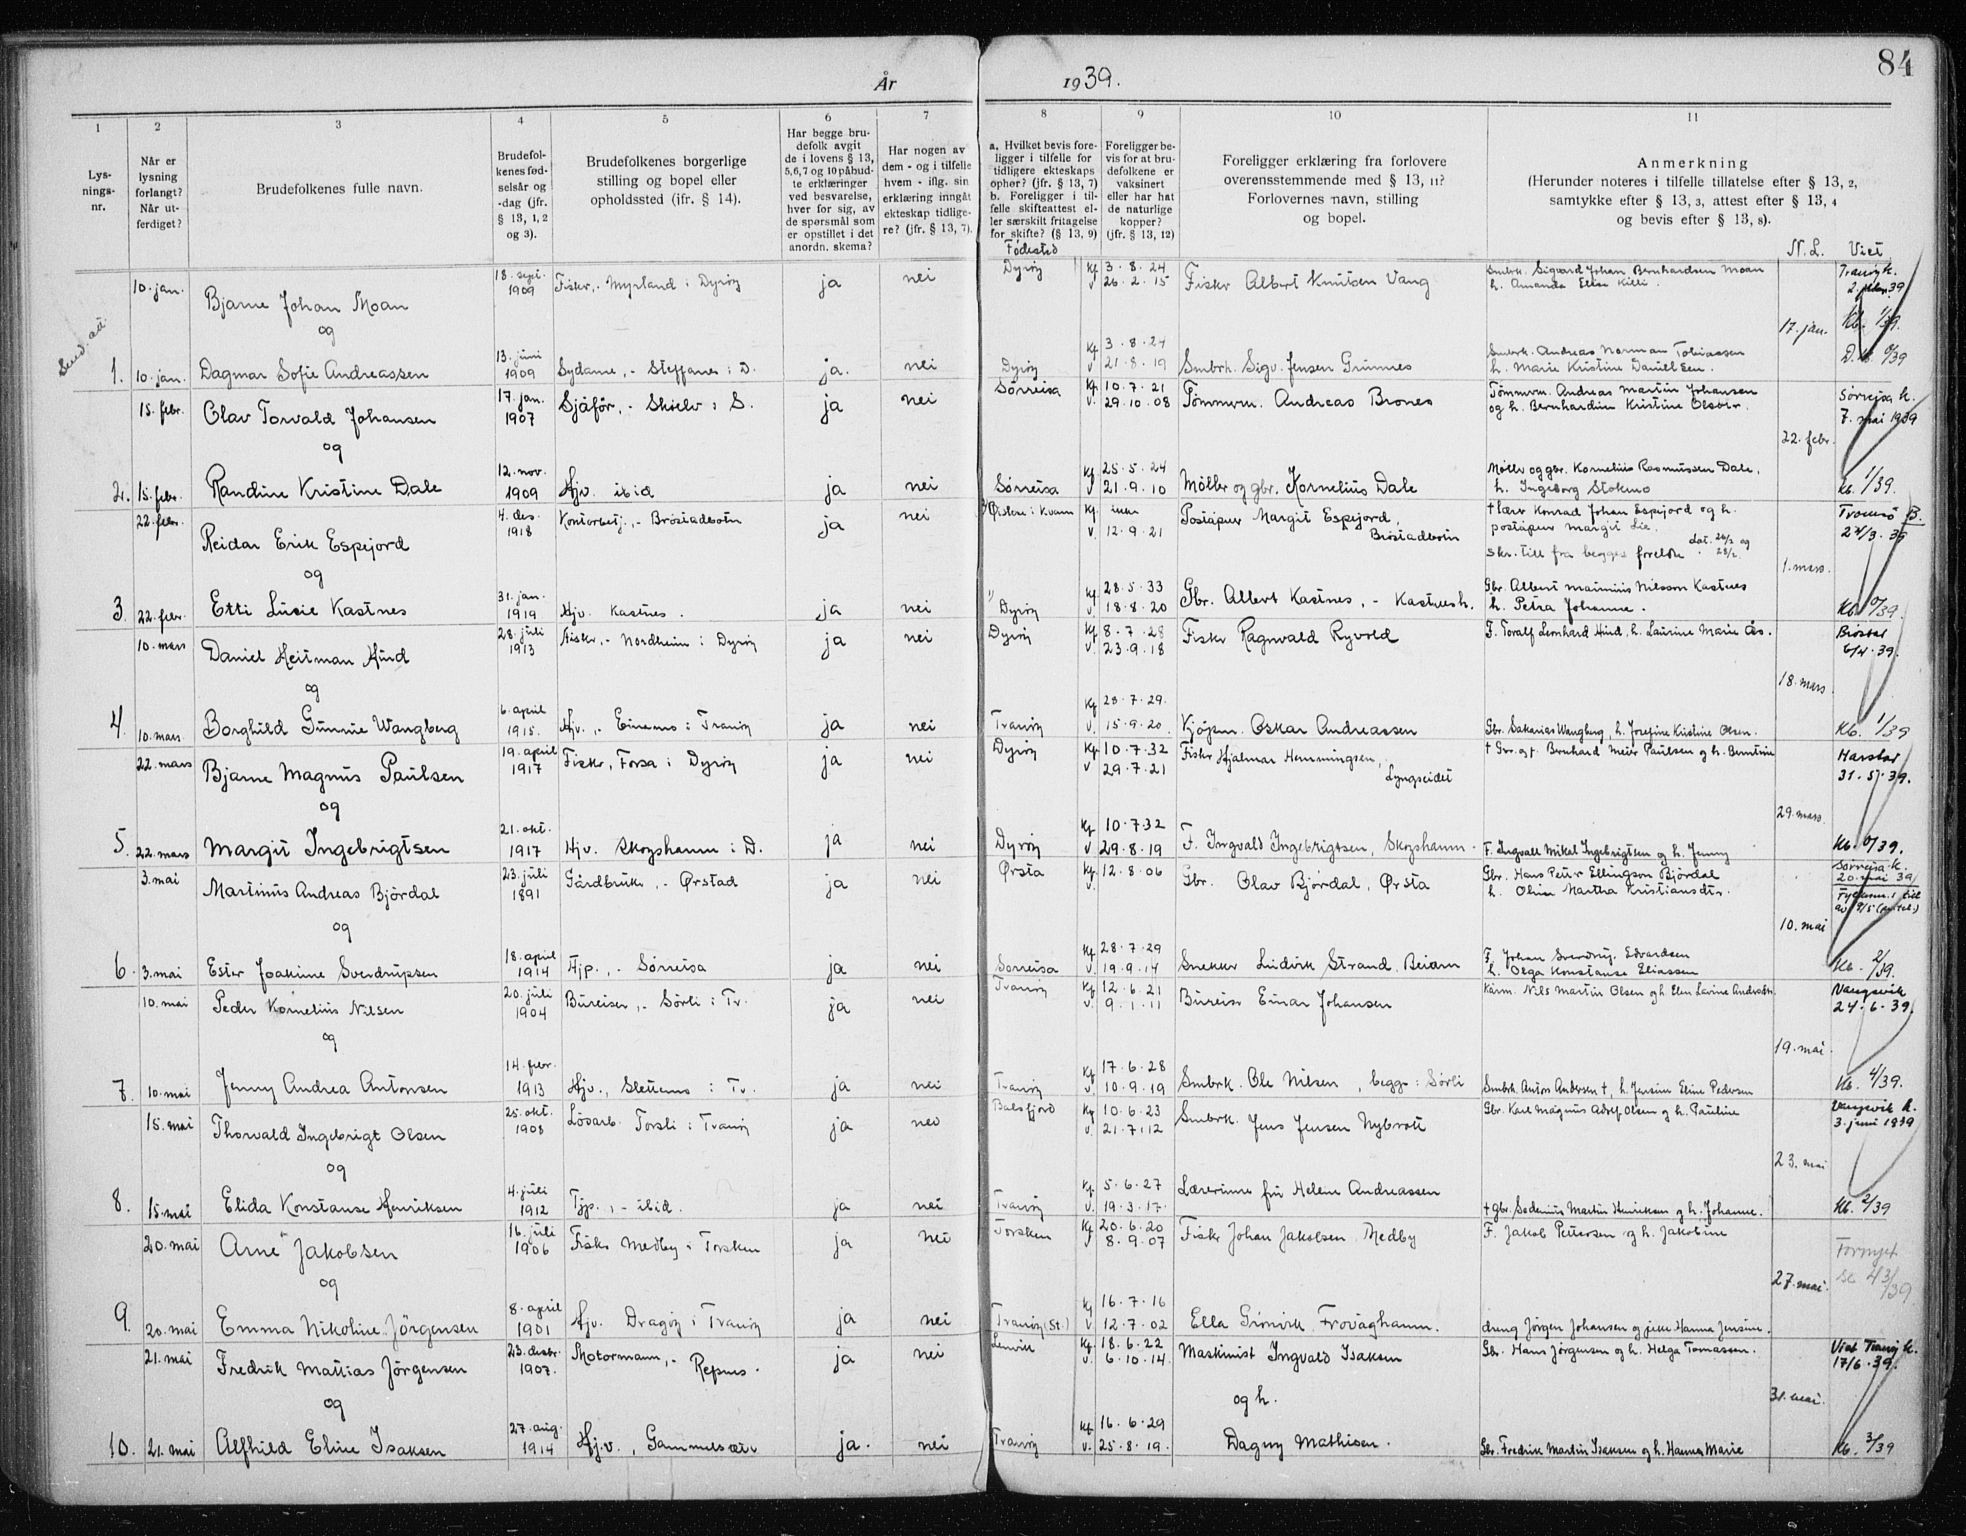 84
År 1939.
1 2 3 4 5 6 7 8 9 10 11
Lys-
nings-
nr.
Når er
lysning
forlangt?
Når ut-
ferdiget?
Brudefolkenes fulle navn.
Brudefol-
kenes fød-
selsår og
-dag (jfr.
§ 13, 1, 2
og 3).
Brudefolkenes borgerlige
stilling og bopel eller
opholdssted (jfr. § 14).
Har begge bru-
defolk avgit
de i lovens § 13,
5,6,7 og 10 påbud-
te erklæringer
ved besvarelse,
hver for sig, av
de spørsmål som
er opstillet i det
anordn. skema?
Har nogen av
dem - og i tilfelle
hvem - iflg. sin
erklæring inngåt
ekteskap tidlige-
re? (jfr. § 13, 7).
a. Hvilket bevis fore-
ligger i tilfelle for
tidligere ekteskaps
ophør? (jfr. § 13, 7)
b. Foreligger i til-
felle skifteattest el-
ler særskilt fritagelse
for skifte? (§ 13, 9)
Fødested
Foreligger be-
vis for at bru-
defolkene er
vaksinert
eller har hat
de naturlige
kopper?
(jfr. § 13, 12)
Foreligger erklæring fra forlovere
overensstemmende med § 13, 11?
Forlovernes navn, stilling
og bopel.
Anmerkning
(Herunder noteres i tilfelle tillatelse efter § 13, 2,
samtykke efter § 13, 3, attest efter § 13, 4
og bevis efter § 13, 8).
N. L. Viet
10. jan. Bjarne Johan Moan 18. sept. 1909 Fiskr., - Myrland i Dyrøy ja nei Dyrøy Kf 3-8-24 v 26-2-15 Fiskr Albert Knutsen Vang Smbrk. Sigvard Johan Bernhardsen Moan h. Amanda Elise Killi. Tranøy k. 2. 39
og
17. jan. Kb. 1/39.
1. 10. jan. Dagmar Sofie Andreassen 13. juni 1909 Sydame, - Steffanes i D. ja. nei Dyrøy Kf 3-8-24 v 21-8-19 Smbrk. Sigv. Jensen Grunnes Smbrk. Andreas Norman Tobiassen h. Marie Kristine Danielsen. 0/39
15. febr. Olav Torvald Johansen 17. jan. 1907 Sjåfør, - Skjelv i S. ja nei Sørreisa Kf 10.7.21 v. 29.10.08 Tømmrm. Andreas Brones Tømmrm. Andreas Martin Johansen og h. Bernhardine Kristine Sørreisa k. 7. mai 1939
og
22. febr.
2. 15. febr. Randine Kristine Dale 12. nov. 1909 Hjv. ibid ja nei Sørreisa Kf 25.5.24 v 21.9.10 Møller og gbr. Kornelius Dale Møller og gbr. Kornelius Rasmussen Dale, h. Ingeborg Stokmo Kb. 1/39.
22. febr. Reidar Erik Espejord 4. des. 1918 Kontorbetj., - Brøstadbotn ja nei Kvam Kf. v. 12-9-21 Poståpnr Margit Espejord, Brøstadbotn † lærr Konrad Johan Espejord og h. poståpnr Margit Lie. skr. till fra begges foreldre dat. og Tromsø B. 39
og
1. mars.
3 22. febr. Etti Lucie Kastnes 31. jan. 1919 Hjv. Kastnes. ja nei Dyrøy Kf. 28.5.33 v. 18.8.20 Gbr. Albert Kastnes, - Kastnesh. Gbr. Albert Marinius Nilsson Kastnes h. Petra Johanne. Kb. 0/39.
10. mars Daniel Heitman Hind 28. juli 1913 Fiskr., - Nordheim i Dyrøy ja nei Dyrøy Kf 8-7-28 v. 23.9.18 Fiskr Ragnvald Ryvold F. Toralf Lernhard Hind, h. Laurine Marie Ås. Brøstad 6/4.39.
og
18. mars
4. 10. mars. Borghild Gunnie Wangberg 6. april 1915. Hjv., Einemo i Tranøy ja nei Tranøy Kf 23.7.29. v. 15.9.20. Kjøpm. Oskar Andreassen Gbr. Sakarias Wangberg, h. Josefine Kristine Olsen. Kb. 1/39
22. mars Bjarne Magnus Paulsen 19. april 1917 Fiskr, Forsa i Dyrøy ja nei Dyrøy Kf 10.7.32 v 29.7.21 Fiskr Hjalmar Hemmingsen, Lyngseidet † Gbr. og f. Bernhard Meier Paulsen og h. Berntine Harstad 31.5.39.
og
29. mars.
5. 22. mars Margit Ingebrigtsen 21. okt. 1917 Hjv. Skogshamn i D. ja nei Dyrøy Kf 10.7.32 v 29.8.19 F. Ingvald Ingebrigtsen, Skogshamn. F. Ingvald Mikal Ingebrigtsen og h. Jenny Kb. 0/39.
3. mai Martinus Andreas Bjørdal 23. juli 1891 Gårdbruker, - Ørstad ja nei Ørsta v. 12.8.06 Gbr. Olav Bjørdal, Ørsta Gbr. Hans Peter Ellingson Bjørdal h. Oline Martha Kristiansdtr. Sørreisa k. 20. mai 39 Fylkesm. till av 9/5
og
10. mai
6. 3. mai Ester Joakime Sverdrupsen 18. april 1914 Hjp., - Sørreisa ja nei Sørreisa Kf 28.7.29 v. 19.9.14 Snekker Ludvik Strand, Beiarn F. Johan Sverdrup Edvardsen h. Olga Konstanse Eliassen Kb. 2/39.
10. mai Peder Kornelius Nilsen 20. juli 1904 Bureiser, - Sørli i Tr. ja nei Tranøy Kf 12.6.21 v 9.1.11 Bureisr Einar Johansen Kårm. Nils Martin Olsen og h. Elen Lavine Vangsvik 24-6-39.
og
19. mai.
7. 10. mai Jenny Andrea Antonsen 14. febr. 1913 Hjv., Slettemo i Tr. ja nei Tranøy Kf 17.6.28 v. 10.9.19 Smbrk. Ole Nilsen, begge i Sørli Smbrk. Anton Andersen †, h. Jensine Eline Pedersen Kb. 4/39.
15. mai Thorvald Ingebrigt Olsen 25. okt. 1908 Løsarb. Torsli i Tranøy ja nei Balsfjord Kf 10.6.23 v. 21.7.12 Smbrk. Jens Jensen Nybrott Gbr. Karl Magnus Adolf Olsen og h. Pauline Vangsvik k. 3. juni 1939
og
23. mai
8. 15. mai Elida Konstanse Henriksen 4. juli 1912 Tjp., - ibid. ja nei Tranøy Kf 5.6.27 v. 19.3.17. Lærerinne fru Helene Andreassen † gbr. Sedenius Martin Henriksen og h. Johanne. Kb. 2/39
20. mai Arne Jakobsen 16. juli 1906 Fiskr Medby i Torsken ja nei Torsken Kf 20.6.20 v 8.9.07 Fiskr Johan Jakobsen Medby F. Jakob Pettersen og h. Jakobine Fornyet se 43/39
og
27. mai.
9. 20. mai Emma Nikoline Jörgensen 8. april 1901 Hjv. Dragøy i Tranøy ja nei Tranøy (St.) Kf 16.7.16 v 12.7.02 Ella Grønvik, Frovåghamn. dreng Jørgen Johansen og pike Hanna Jensine.
21. mai Fredrik Mattias Jörgensen 23. desbr. 1907. Motormann, - Refsnes. ja nei Lenvik Kf. 18.6.22 v. 6.10.14. Maskinist Ingvald Isaksen Gbr. Hans Jørgensen og h. Helga Tomassen. Viet Tranøy k. 17/6.39.
og og h.
31. mai.
10. 21. mai Alfhild Eline Isaksen 27. aug. 1914 Hjv., Gammelseter ja. nei Tranøy Kf 16.6.29 v. 25.8.19. Dagny Mathisen. Gbr. Fredrik Martin Isaksen og h. Hanna Marie Kb. 3/39